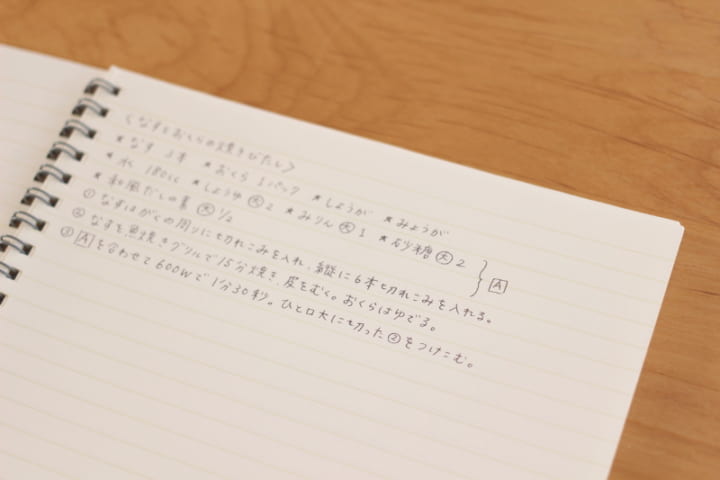 〈なすとおくらの焼きびたし〉
*なす 3本 *おくら 1パック *しょうが *みょうが
*水 180cc *しょうゆ 大 2 *みりん 大 1 *砂糖 大 2
*和風だしの素 大 1/2 A
① なすはがくの周りに切れこみを入れ、縦に6本切れこみを入れる。
② なすを魚焼きグリルで15分焼き、皮をむく。おくらはゆでる。
③ Aを合わせて600Wで1分30秒。ひと口大に切った②をつけこむ。